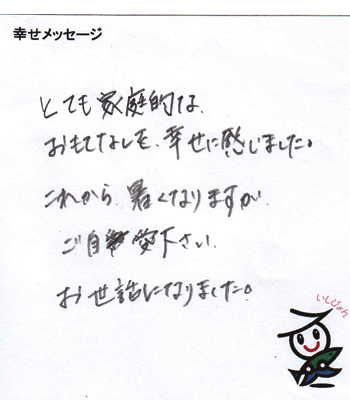 幸せメッセージ
とても家庭的な、
おもてなしを、幸せに感じました。
これから、暑くなりますが、
ご自愛下さい。
お世話になりました。